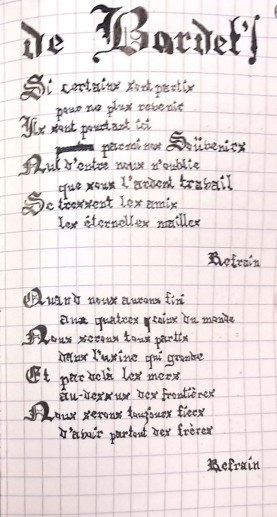 de Bordel's
Si certains sont partis
pour ne plus revenir
Ils sont pourtant ici
parmi nos Souvenirs
Nul d'entre nous n'oublie
que sous l'ardent travail
Se tressent les amis
les éternelles mailles
Refrain
Quand nous aurons fini
aux quatres coins du monde
Nous serons tous partis
dans l'usine qui gronde
Et par delà les mers
au-dessus des frontières
Nous serons toujours fiers
d'avoir partout des frères
Refrain